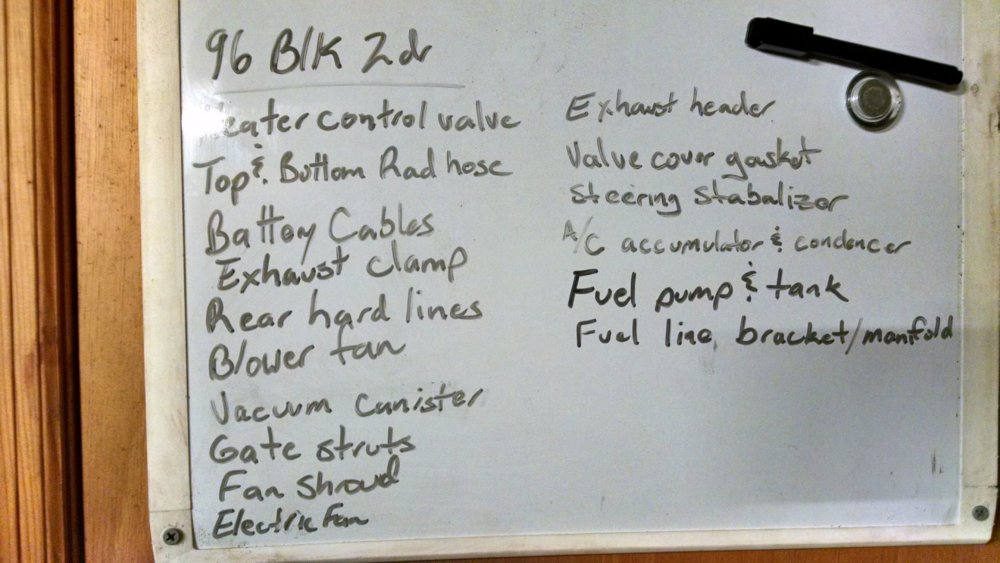 96 Blk 2dr
Heater control valve
Top & Bottom Rad hose
Battery Cables
Exhaust clamp
Rear hard lines
Blower fan
Vacuum canister
Gate struts
Fan Shroud
Electric Fan
Exhaust header
Valve cover gasket
Steering Stabalizer
A/C accumulator & condencer
Fuel pump & tank
Fuel line bracket/manifold